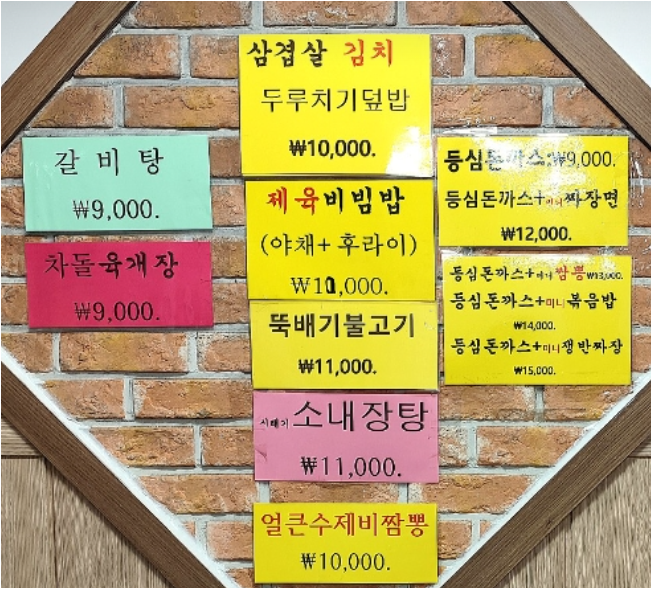 갈비탕
₩9,000.
차돌육개장
₩9,000.
삼겹살 김치
두루치기덮밥
₩10,000.
제육비빔밥
(야채+후라이)
뚝배기불고기
₩11,000.
시래기 소내장탕
₩11,000.
얼큰수제비짬뽕
₩10,000.
등심돈까스:₩9,000.
등심돈까스+미니짜장면
₩12,000.
등심돈까스+미니짬뽕₩13,000.
등심돈까스+미니볶음밥
₩14,000.
등심돈까스+미니쟁반짜장
₩15,000.